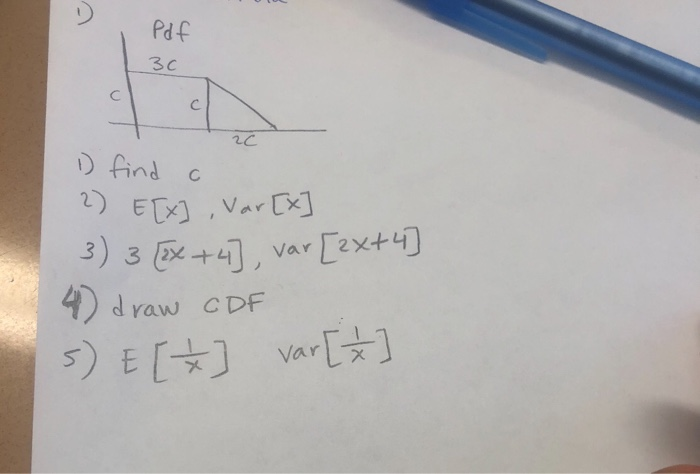 1)
Pdf
3c
c
c
2c
1) find c
2) E[x], Var[x]
3) 3[2x+4], var[2x+4]
4) draw CDF
5) E[1/x] var[1/x]